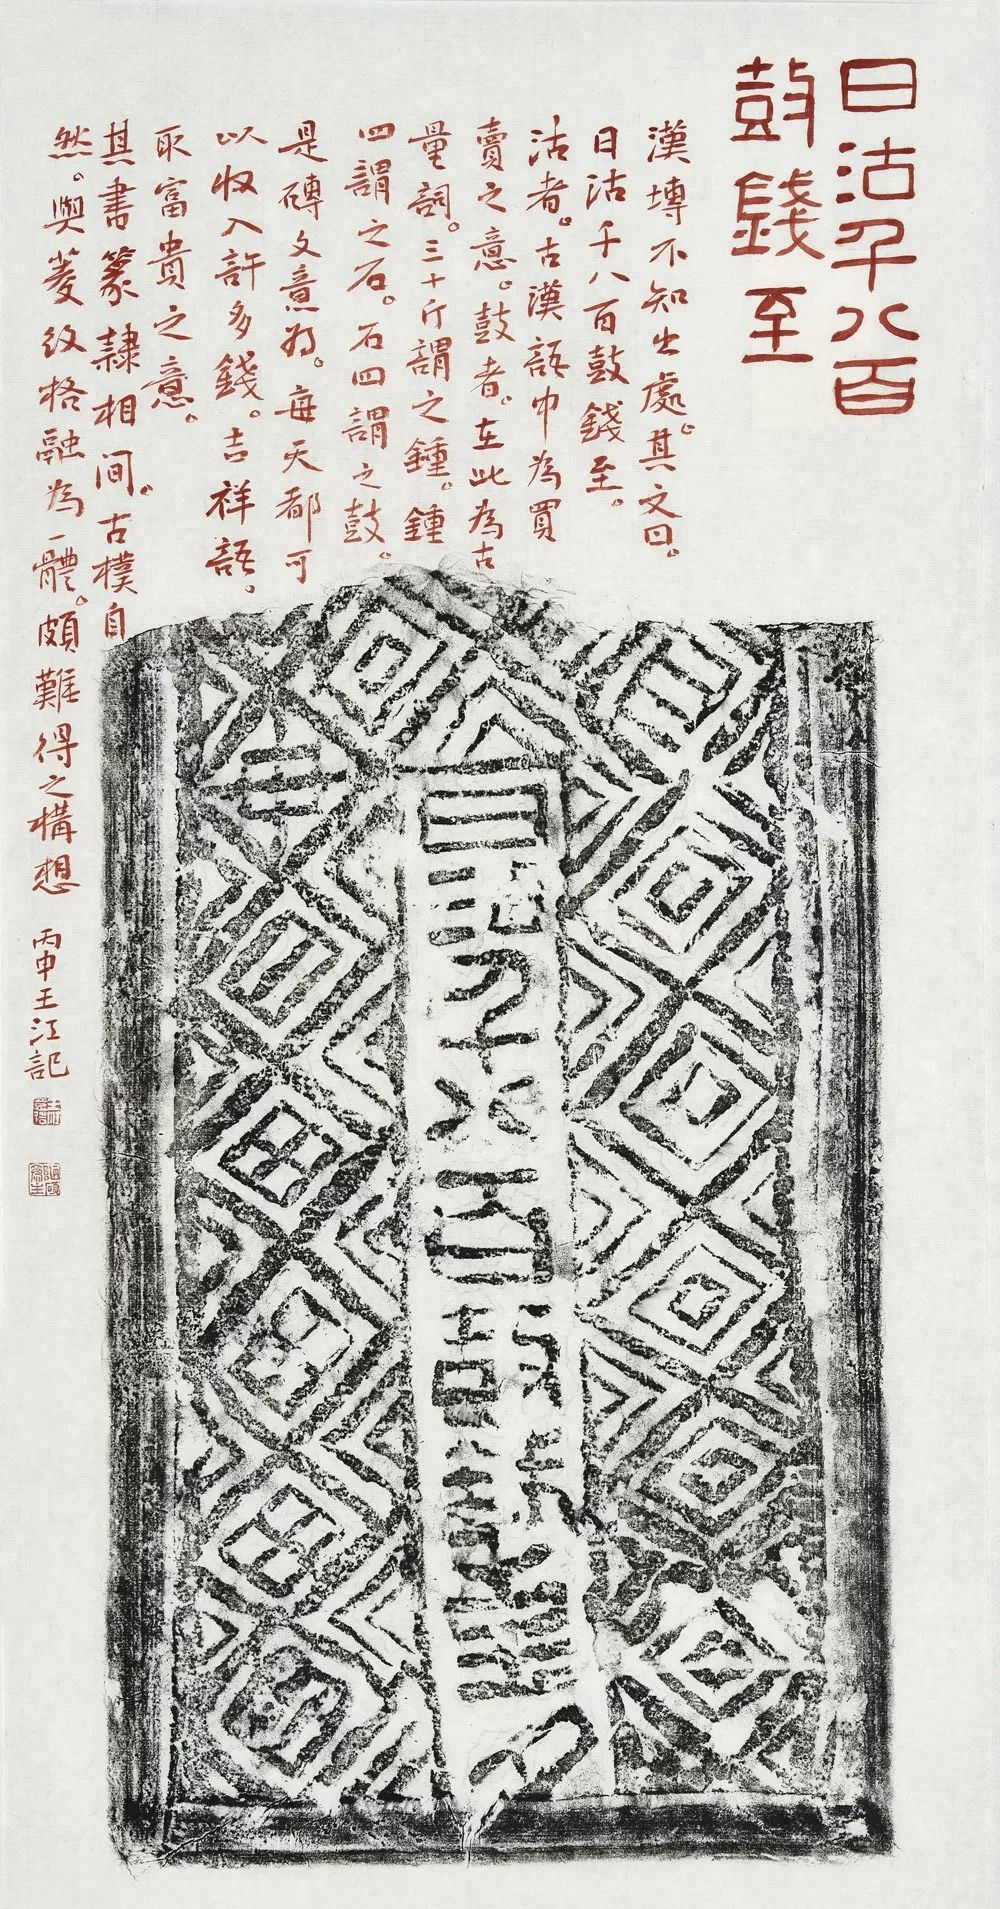 日沽千八百
鼓錢至
漢塼不知出處。其文曰。
日沽千八百鼓錢至。
沽者。古漢語中為買
賣之意。鼓者。在此為古
量詞。三十斤謂之鍾。鍾
四謂之石。石四謂之鼓。
是磚文意為。每天都可
以收入許多錢。吉祥語。
取富貴之意。
其書篆隸相间。古樸自
然。與菱紋格融為一體。頗難得之構想
丙申王江記
日沽千八百鼓錢